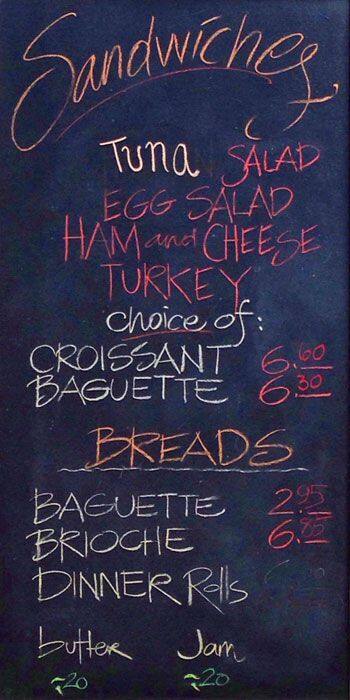 Sandwiches
Tuna SALAD
EGG SALAD
HAM and CHEESE
TURKEY
choice of:
CROISSANT 6.60
BAGUETTE 6.30
BREADS
BAGUETTE 2.95
BRIOCHE 6.85
DINNER Rolls
butter Jam
~20 ~20